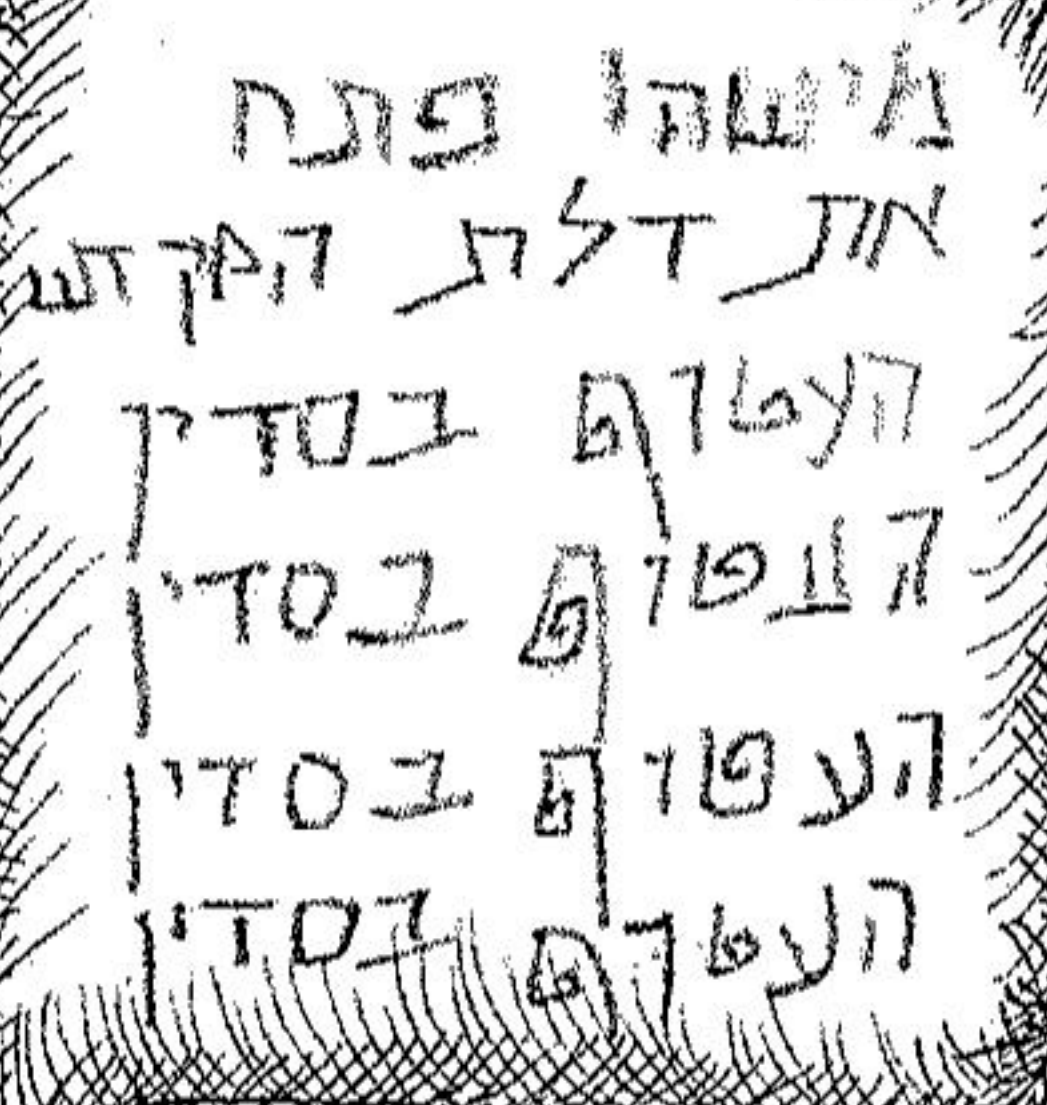 מישהו פתח
את דלת המקדש
העטוף בסדין
העטוף בסדין
העטוף בסדין
העטוף בסדין